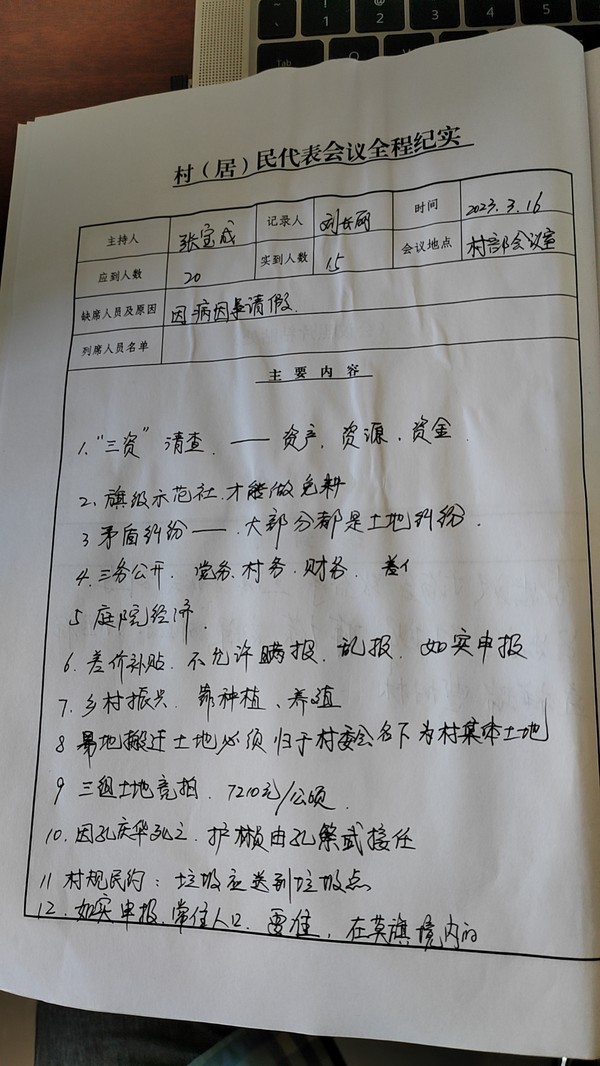 村（居）民代表会议全程纪实
主持人 张宝成 记录人 时间 2023.3.16
应到人数 20 实到人数 15 会议地点 村部会议室
缺席人员及原因 因病因事请假.
列席人员名单
主要内容
1、“三资”清查. —— 资产. 资源. 资金.
2、旗级示范社.才能做免耕
3 矛盾纠纷——.大部分都是土地纠纷.
4.三务公开. 党务.村务.财务.
5 庭院经济.
6.差价补贴.不允许瞒报.乱报.如实申报
7.乡村振兴 靠种植、养殖
8 易地搬迁土地必须归于村委会名下为村集体土地
9 三组土地竞拍. 7210元/公顷.
10.因孔庆华 . 由孔 接任
11 村规民约：垃圾应送到垃圾点
12.如实申报.常住人口.要准，在莫旗境内的